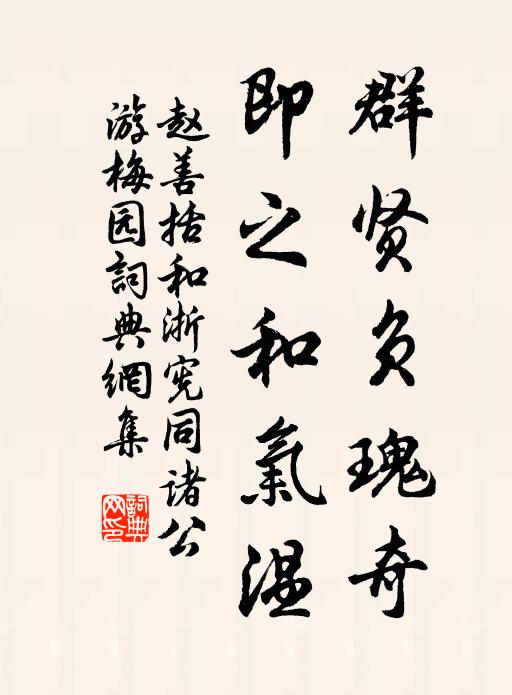 群贤负瑰奇
即之和氣温
赵善括和浙宪同诸公
游梅园詞典網集
詞典网印